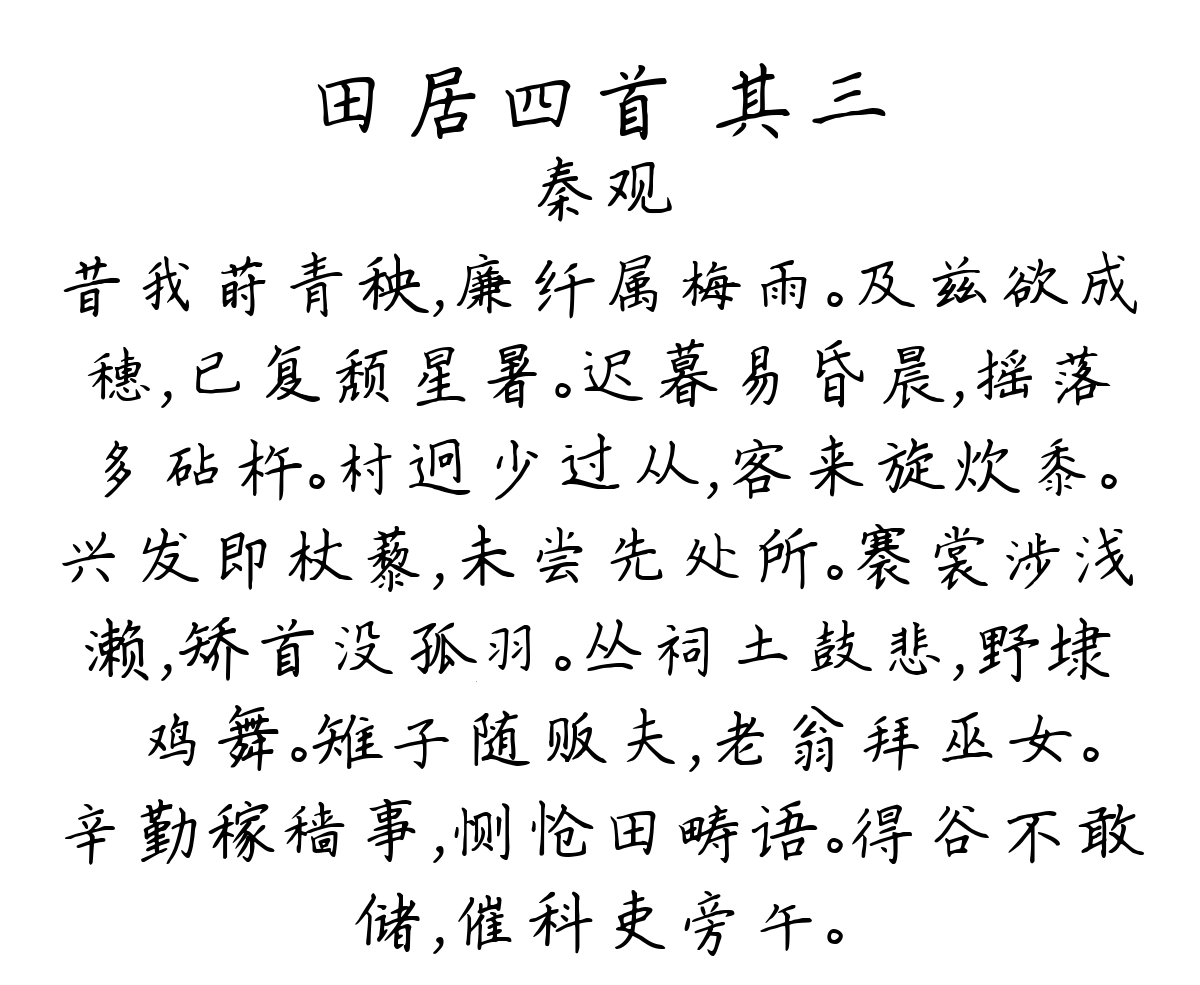 田居四首 其三
秦观
昔我莳青秧,廉纤属梅雨。及兹欲成
穗,已复颓星暑。迟暮易昏晨,摇落
多砧杵。村迥少过从,客来旋炊黍。
兴发即杖藜,未尝先处所。褰裳涉浅
濑,矫首没孤羽。丛祠土鼓悲,野埭
鸡舞。雉子随贩夫,老翁拜巫女。
辛勤稼穑事,恻怆田畴语。得谷不敢
储,催科吏旁午。